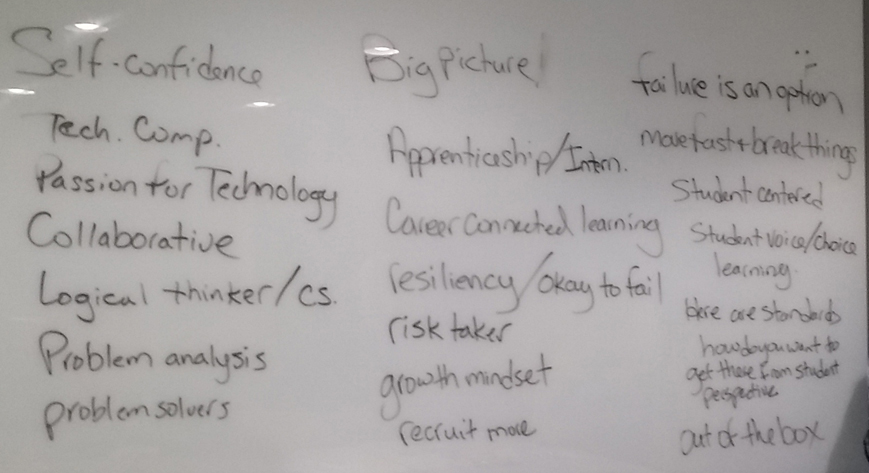 Self-confidence
Tech. Comp.
Passion for Technology
Collaborative
Logical thinker/cs.
Problem analysis
problem solvers
Big Picture!
Apprenticeship/Intern.
Career connected learning
resiliency/okay to fail
risk taker
growth mindset
recruit more
failure is an option
move fast + break things
Student centered
Student voice/choice
learning.
Here are standards
how do you want to
get there from student
perspective
out of the box